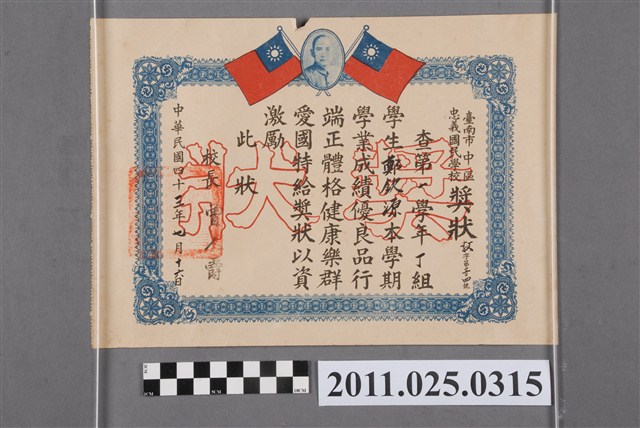 臺南市中區
忠義國民學校
獎狀
查第一學年丁組
學生鄭欽源本學期
學業成績優良品行
端正體格健康樂群
愛國特給獎狀以資
激勵
此狀
校長
中華民國四十三年七月十六日
獎狀
2011.025.0315